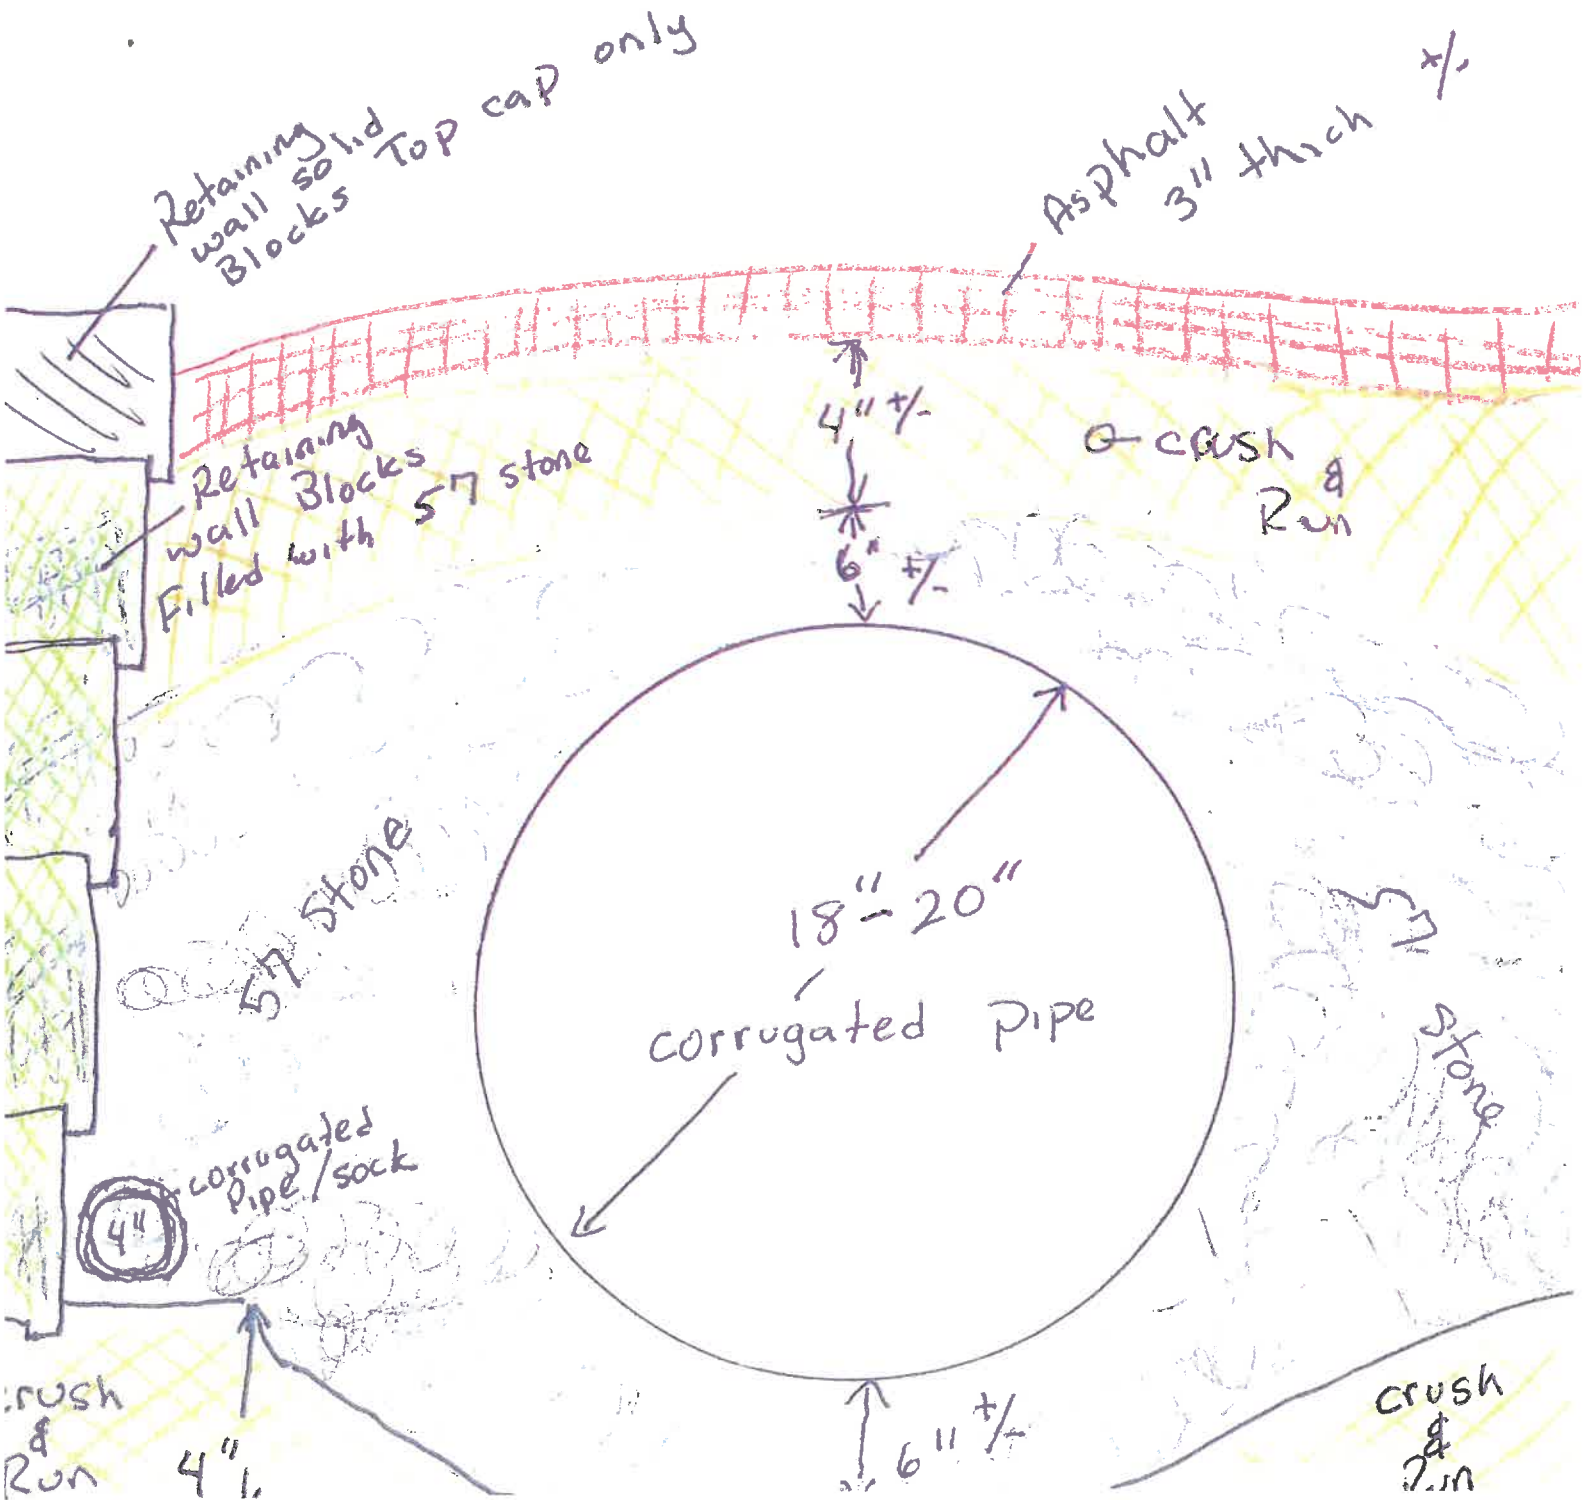 Retaining
wall solid
Blocks Top cap only
Asphalt
3" thick +/-
Retaining
wall Blocks
Filled with 57 stone
4" +/-
6" +/-
crush
&
Run
57 stone
18"-20"
corrugated pipe
57
stone
corrugated
pipe/sock
4"
crush
&
Run
4"
6" +/-
crush
&
Run